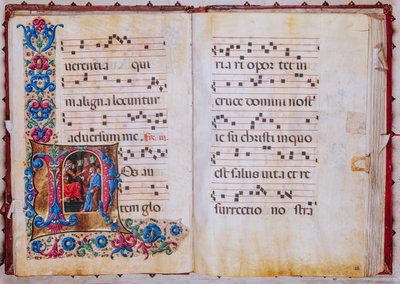 uerentia qui
maligna locuntur
aduersum me Fre. iii.
Nos au
tem glo
ria ri opor tet in
cruce domini nost
ie su christi in quo
est salus uita et re
surrectio no stra